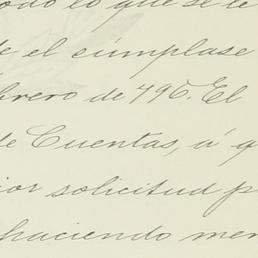 odo lo que se le
de el cúmplase
brero de 496. El
de Cuentas, á q
ior solicitud p
haciendo men